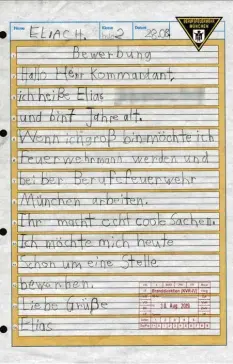 Name ELIAC H. Klasse 2 Datum 22.08
BERUFSFEUERWEHR
MÜNCHEN
Bewerbung
Hallo Herr Kommandant,
ich heiße Elias
und bin 7 Jahre alt.
Wenn ich groß bin möchte ich
Feuerwehrmann werden und
bei der Berufsfeuerwehr
München arbeiten.
Ihr macht echt coole Sachen.
Ich möchte mich heute
Schon um eine Stelle
bewerben.
Liebe Grüße
Elias
Branddirektion
Aug.